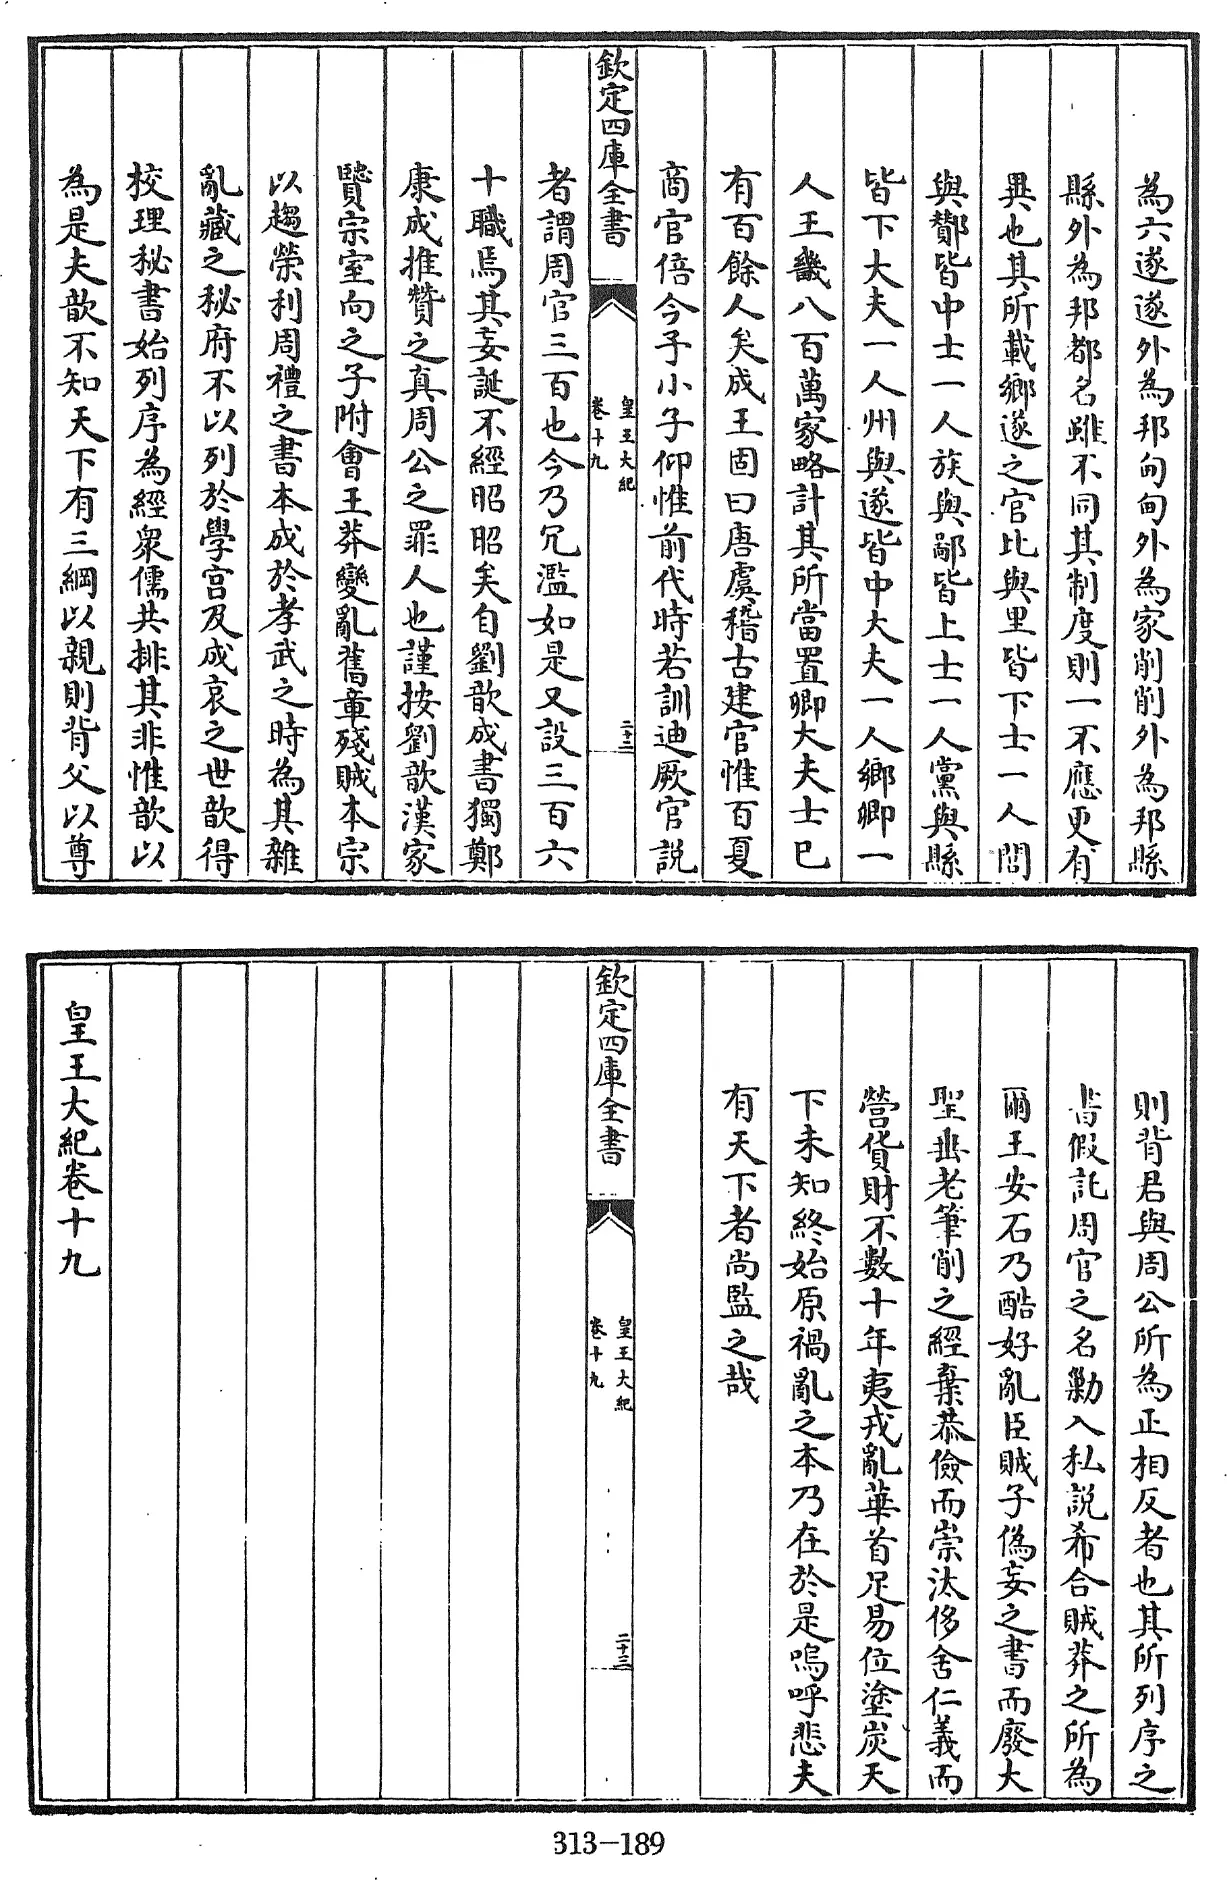 為六遂遂外為邦甸甸外為家削削外為邦縣
縣外為邦都名雖不同其制度則一不應更有
異也其所載鄉遂之官比與里皆下士一人閭
與酇皆中士一人族與鄙皆上士一人黨與縣
皆下大夫一人州與遂皆中大夫一人鄉卿一
人王畿八百萬家略計其所當置卿大夫士已
有百餘人矣成王固曰唐虞稽古建官惟百夏
商官倍今予小子仰惟前代時若訓迪厥官説
欽定四庫全書
皇王大紀
卷十九
二十二
者謂周官三百也今乃冗濫如是又設三百六
十職焉其妄誕不經昭昭矣自劉歆成書獨鄭
康成推贊之真周公之罪人也謹按劉歆漢家
賢宗室向之子附會王莽變亂舊章殘賊本宗
以趨榮利周禮之書本成於孝武之時為其雜
亂藏之秘府不以列於學官及成哀之世歆得
校理秘書始列序為經衆儒共排其非惟歆以
為是夫歆不知天下有三綱以親則背父以尊
則背君與周公所為正相反者也其所列序之
書假託周官之名勦入私説希合賊莽之所為
爾王安石乃酷好亂臣賊子偽妄之書而廢大
聖垂老筆削之經棄恭儉而崇汰侈舍仁義而
營貨財不數十年夷戎亂華首足易位塗炭天
下未知終始原禍亂之本乃在於是嗚呼悲夫
有天下者尚監之哉
欽定四庫全書
皇王大紀
卷十九
二十三
皇王大紀卷十九
313-189